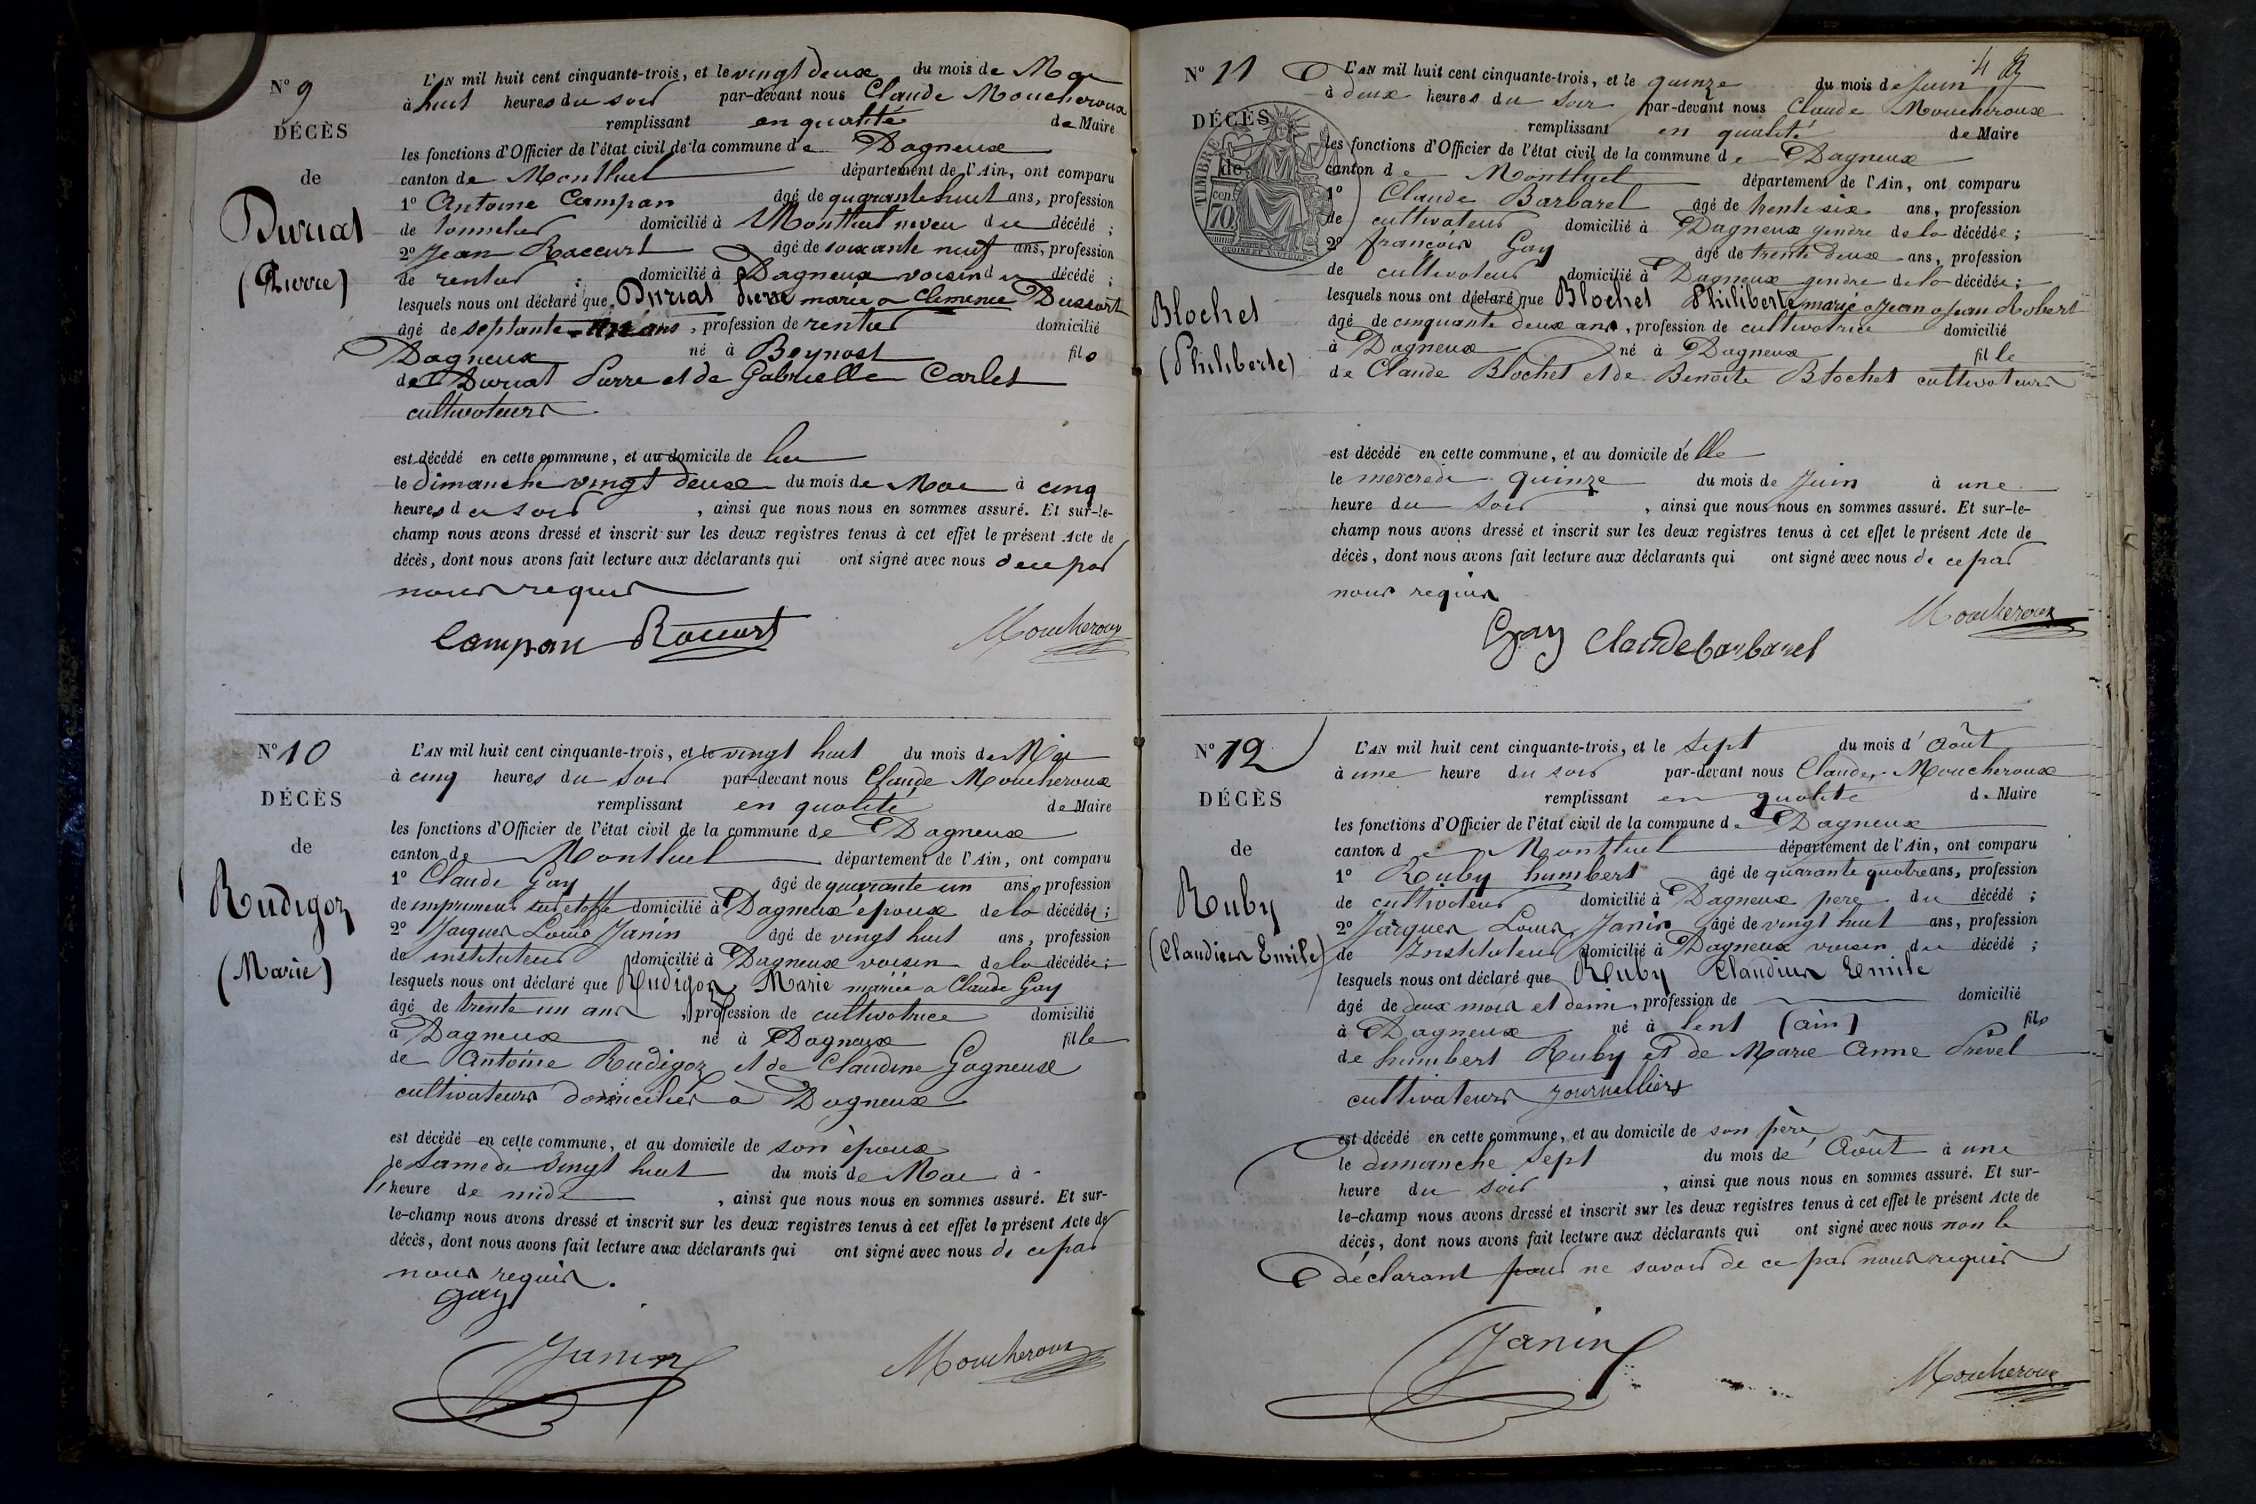 N° 9
DÉCÈS
de
Duriat
(Pierre)
L'AN mil huit cent cinquante-trois, et le vingt deux du mois de Mai
à huit heures du soir par-devant nous Claude Moucheroux
remplissant en qualité de Maire
les fonctions d'Officier de l'état civil de la commune de Dagneux
canton de Montluel département de l'Ain, ont comparu
1° Antoine Campan âgé de quarante huit ans, profession
de tonnelier domicilié à Montluel neveu du décédé ;
2° Jean Raccurt âgé de soixante neuf ans, profession
de rentier domicilié à Dagneux voisin du décédé ;
lesquels nous ont déclaré que Duriat Pierre marié a Clemence Dussort
âgé de septante ans, profession de rentier domicilié
Dagneux né à Beynost fils
de Duriat Pierre et de Gabrielle Carlet
cultivateurs
est décédé en cette commune, et au domicile de lui
le dimanche vingt deux du mois de Mai à cinq
heures du soir, ainsi que nous nous en sommes assuré. Et sur-le-
champ nous avons dressé et inscrit sur les deux registres tenus à cet effet le présent Acte de
décès, dont nous avons fait lecture aux déclarants qui ont signé avec nous de ce par
nous requis
Campan Raccurt Moucheroux
N° 10
DÉCÈS
de
Rudigoz
(Marie)
L'AN mil huit cent cinquante-trois, et le vingt huit du mois de Mai
à cinq heures du soir par-devant nous Claude Moucheroux
remplissant en qualité de Maire
les fonctions d'Officier de l'état civil de la commune de Dagneux
canton de Montluel département de l'Ain, ont comparu
1° Claude Gay âgé de quarante un ans, profession
de imprimeur sur étoffe domicilié à Dagneux époux de la décédée ;
2° Jacques Louis Janin âgé de vingt huit ans, profession
de instituteur domicilié à Dagneux voisin de la décédée ;
lesquels nous ont déclaré que Rudigoz Marie mariée a Claude Gay
âgé de trente un ans, profession de cultivatrice domicilié
à Dagneux né à Dagneux fille
de Antoine Rudigoz et de Claudine Gagneux
cultivateurs domiciliés à Dagneux
est décédé en cette commune, et au domicile de son époux
le samedi vingt huit du mois de Mai à
heure de midi, ainsi que nous nous en sommes assuré. Et sur-
le-champ nous avons dressé et inscrit sur les deux registres tenus à cet effet le présent Acte de
décès, dont nous avons fait lecture aux déclarants qui ont signé avec nous de ce par
nous requis.
Gay
Janin Moucheroux
N° 11
DÉCÈS
de
Blochet
(Philiberte)
TIMBRE
cen
70
L'AN mil huit cent cinquante-trois, et le quinze du mois de Juin
à deux heures du soir par-devant nous Claude Moucheroux
remplissant en qualité de Maire
les fonctions d'Officier de l'état civil de la commune de Dagneux
canton de Montluel département de l'Ain, ont comparu
1° Claude Barbarel âgé de trente six ans, profession
de cultivateur domicilié à Dagneux gendre de la décédée ;
2° françois Gay âgé de trente deux ans, profession
de cultivateur domicilié à Dagneux gendre de la décédée ;
lesquels nous ont déclaré que Blochet Philiberte marié a Jean a Jean Robert
âgé de cinquante deux ans, profession de cultivatrice domicilié
à Dagneux né à Dagneux fille
de Claude Blochet et de Benoite Blochet cultivateurs
est décédé en cette commune, et au domicile d'elle
le mercredi quinze du mois de Juin à une
heure du soir, ainsi que nous nous en sommes assuré. Et sur-le-
champ nous avons dressé et inscrit sur les deux registres tenus à cet effet le présent Acte de
décès, dont nous avons fait lecture aux déclarants qui ont signé avec nous de ce par
nous requis
Gay Claude barbarel Moucheroux
N° 12
DÉCÈS
de
Ruby
(Claudius Emile)
L'AN mil huit cent cinquante-trois, et le sept du mois d'Août
à une heure du soir par-devant nous Claude Moucheroux
remplissant en qualité de Maire
les fonctions d'Officier de l'état civil de la commune de Dagneux
canton de Montluel département de l'Ain, ont comparu
1° Ruby humbert âgé de quarante quatre ans, profession
de cultivateur domicilié à Dagneux pere du décédé ;
2° Jacques Louis Janin âgé de vingt huit ans, profession
de Instituteur domicilié à Dagneux voisin du décédé ;
lesquels nous ont déclaré que Ruby Claudius Emile
âgé de deux mois et demi, profession de domicilié
à Dagneux né à lent (ain) fils
de humbert Ruby et de Marie Anne Prevel
cultivateurs journalliers
est décédé en cette commune, et au domicile de son père
le dimanche sept du mois de Août à une
heure du soir, ainsi que nous nous en sommes assuré. Et sur-
le-champ nous avons dressé et inscrit sur les deux registres tenus à cet effet le présent Acte de
décès, dont nous avons fait lecture aux déclarants qui ont signé avec nous non le
déclarant pour ne savoir de ce par nous requis
Janin Moucheroux